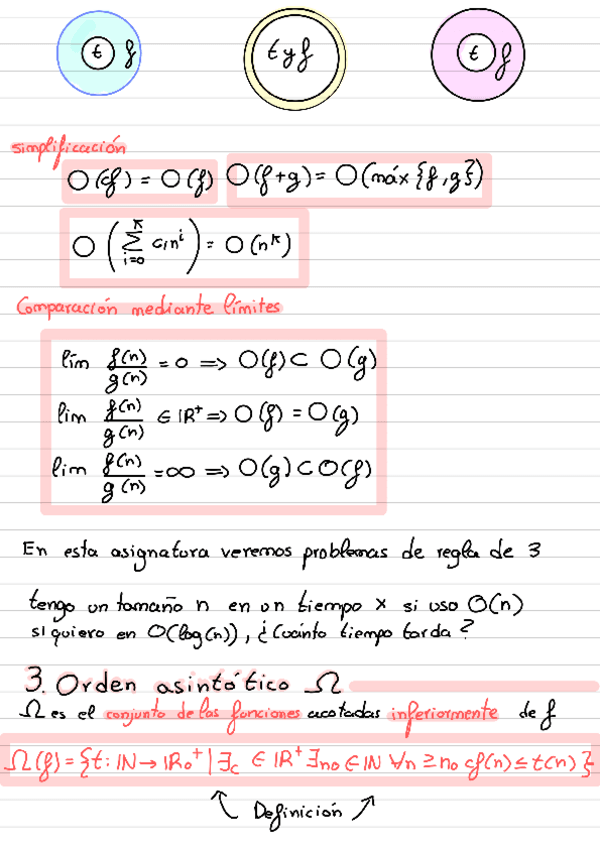 t f t y f t f
simplificación
O(cf) = O(f) O(f+g) = O(máx{f,g})
O(∑_{i=0}^{k} c_i n^i) = O(n^k)
Comparación mediante límites
lím f(n)/g(n) = 0 ⇒ O(f) ⊂ O(g)
lim f(n)/g(n) ∈ ℝ⁺ ⇒ O(f) = O(g)
lim f(n)/g(n) = ∞ ⇒ O(g) ⊂ O(f)
En esta asignatura veremos problemas de regla de 3
tengo un tamaño n en un tiempo x si uso O(n)
si quiero en O(log(n)), ¿Cuánto tiempo tarda?
3. Orden asintótico Ω
Ω es el conjunto de las funciones acotadas inferiormente de f
Ω(f) = {t: ℕ → ℝ₀⁺ | ∃c ∈ ℝ⁺ ∃n₀ ∈ ℕ ∀n ≥ n₀ cf(n) ≤ t(n)}
Definición